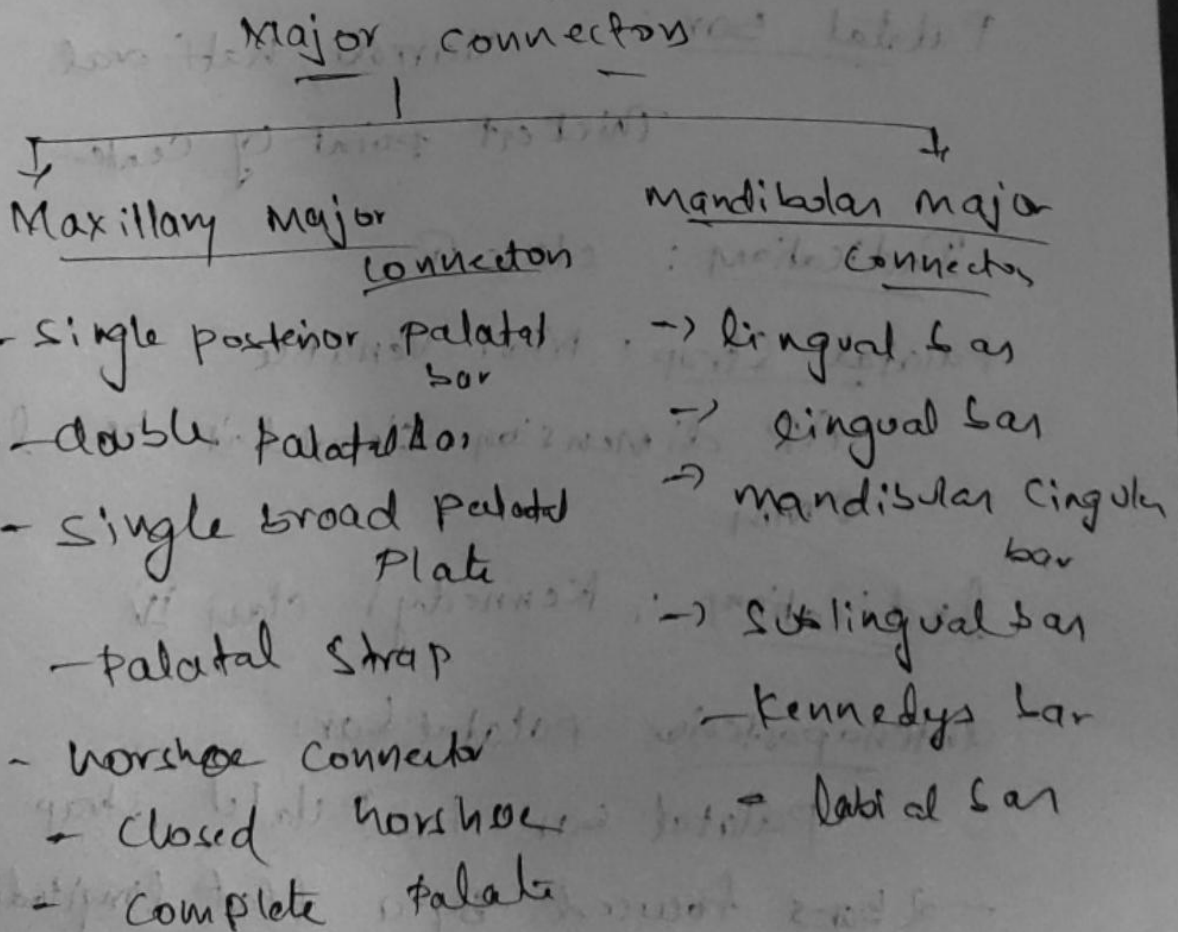 Major connectors
Maxillary Major
connector
- single posterior palatal
bar
- double palatal bar
- single broad palatal
Plate
- palatal strap
- horshoe connector
- closed horshoe
- complete palate
Mandibular major
connector
-> lingual bar
-> lingual bar
-> mandibular cingulum
bar
-> sublingual bar
- Kennedys bar
- labial bar